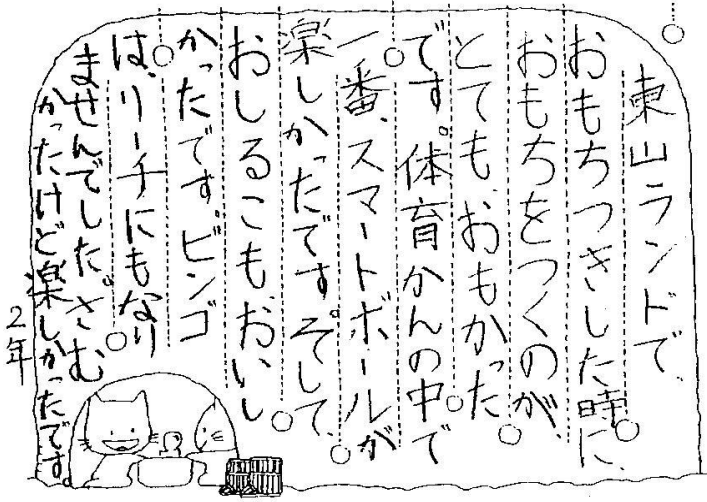 東山ランドで、
おもちつきした時に、
おもちをつくのが、
とても、おもかった
です。体育かんの中で
一番、スマートボールが
楽しかったです。そして、
おしるこも、おいし
かったです。ビンゴ
は、リーチにもなり
ませんでした。さむ
かったけど楽しかったです。
2年